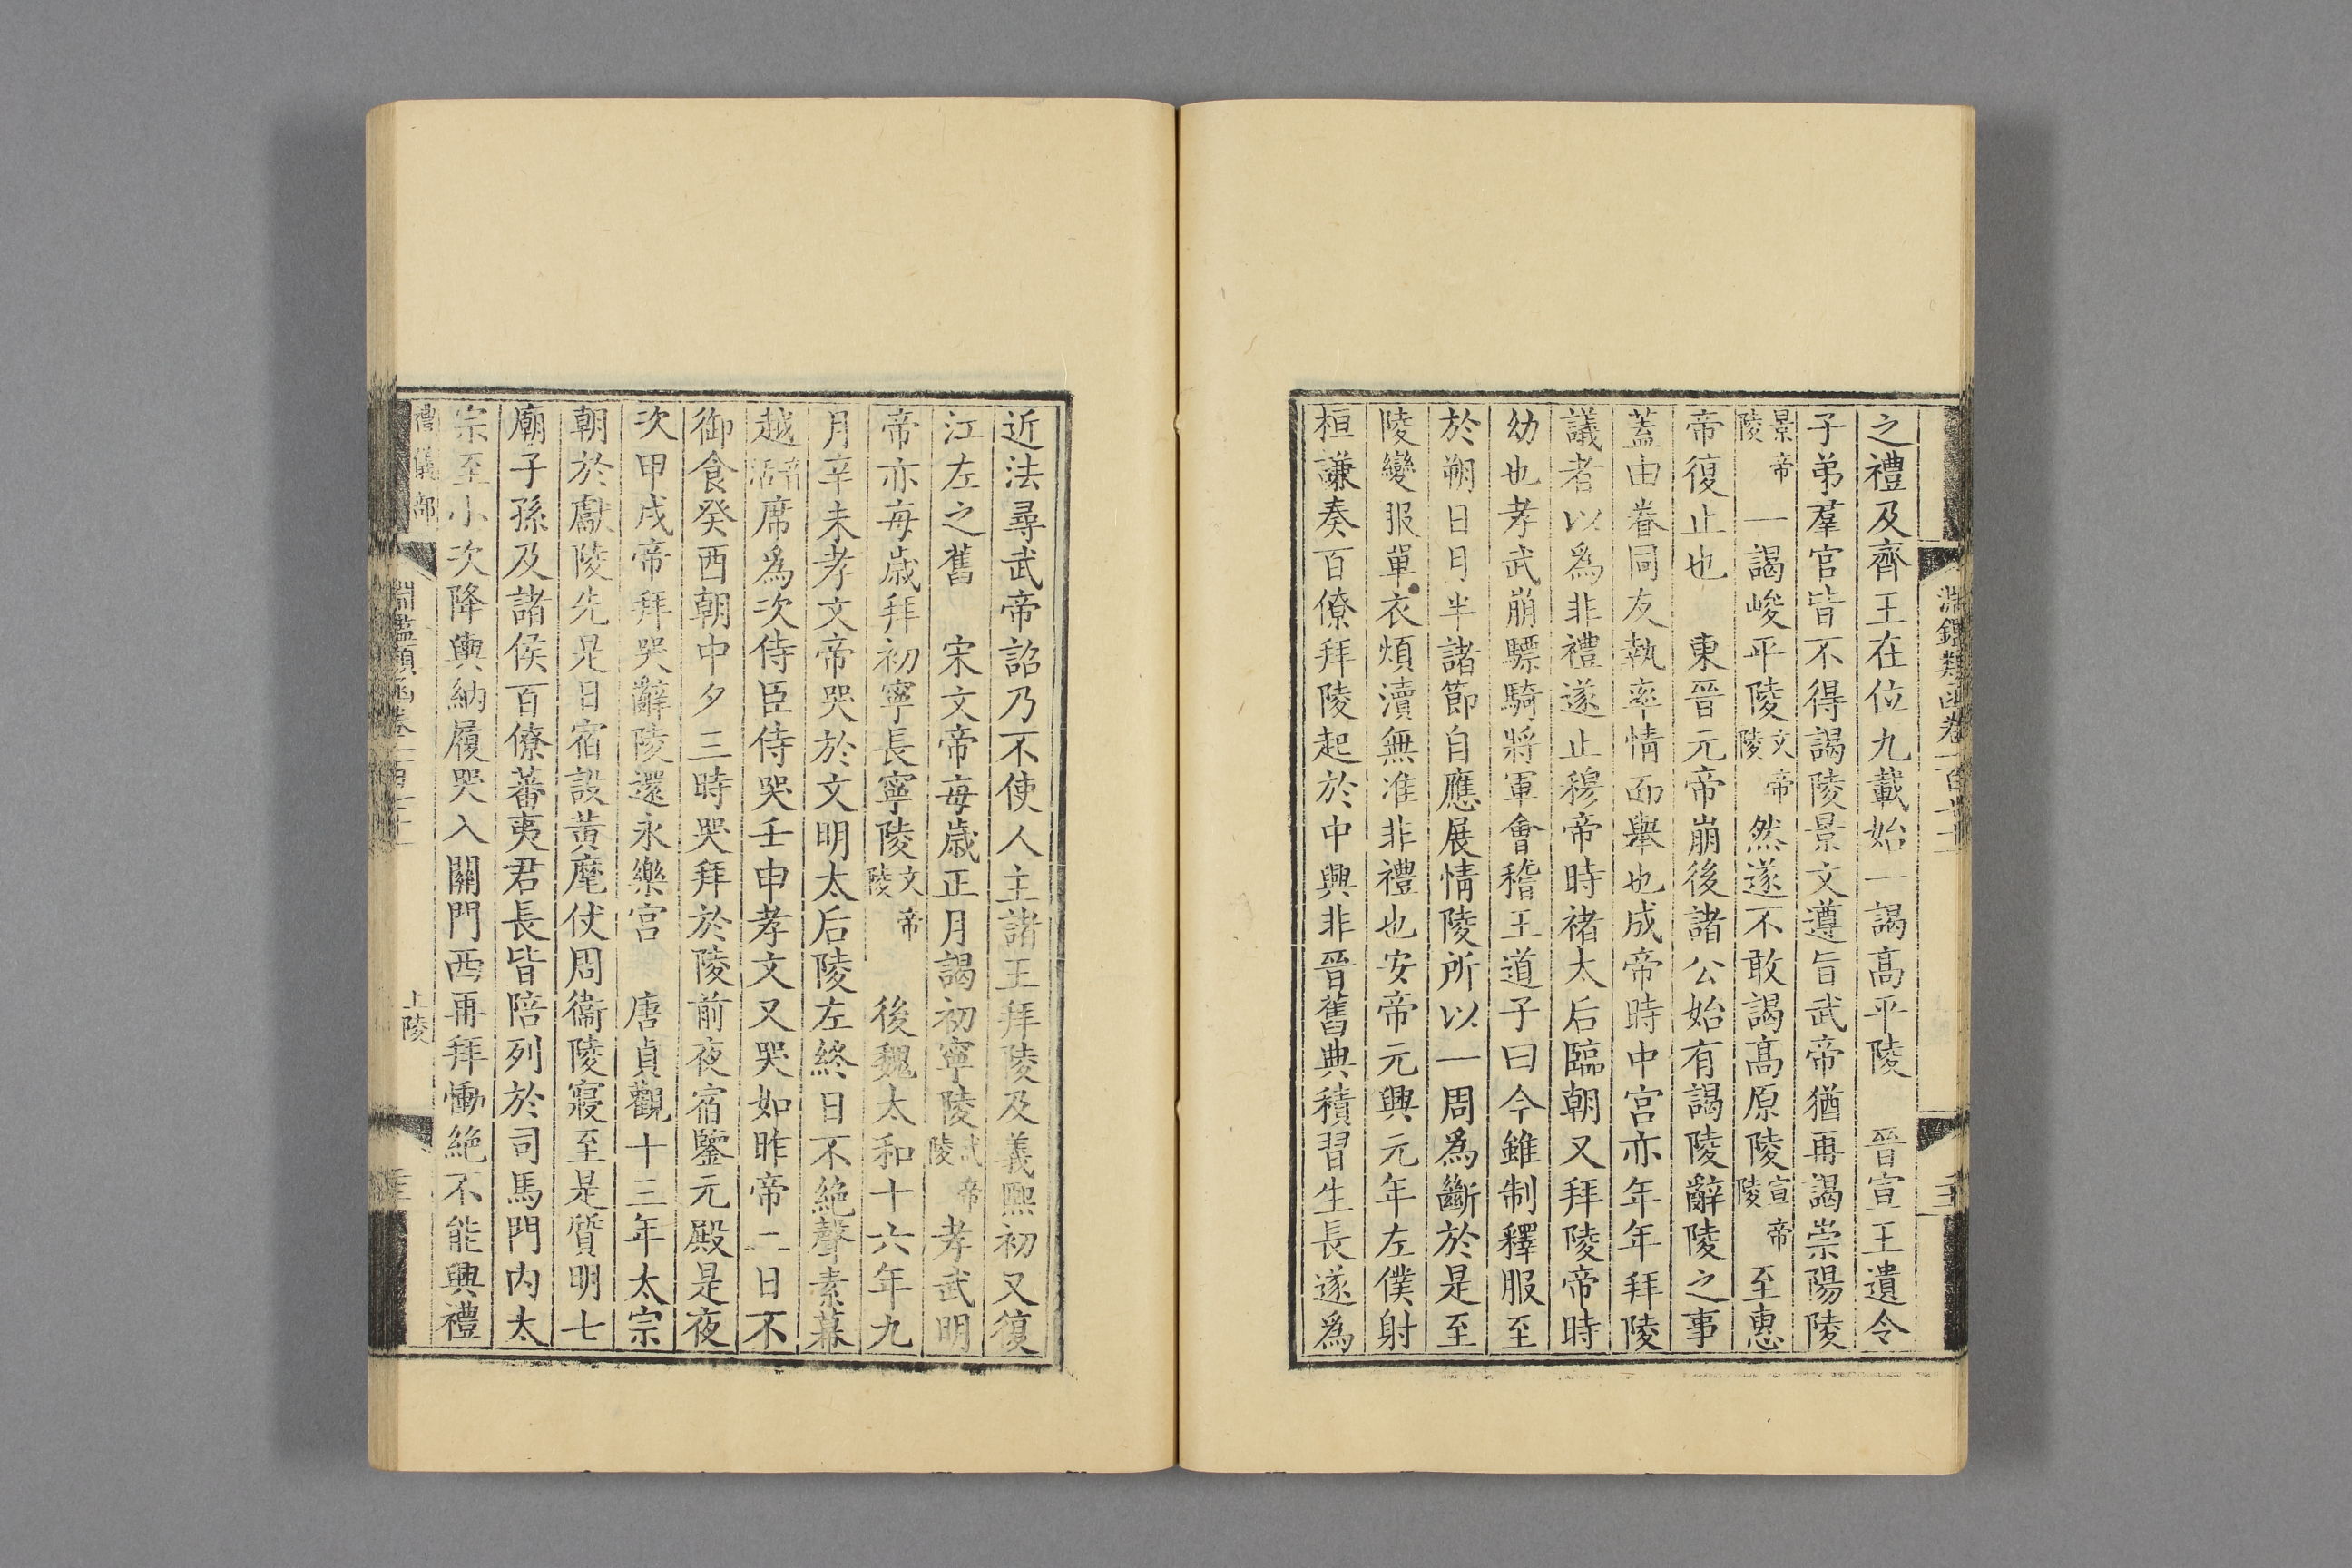 之禮及齊王在位九載始一謁高平陵　晉宣王遺令
子弟羣官皆不得謁陵景文遵旨武帝猶再謁崇陽陵
景帝陵一謁峻平陵文帝陵然遂不敢謁高原陵宣帝陵至惠
帝復止也　東晉元帝崩後諸公始有謁陵辭陵之事
蓋由眷同友執率情而舉也成帝時中宮亦年年拜陵
議者以爲非禮遂止穆帝時褚太后臨朝又拜陵帝時
幼也孝武崩驃騎將軍會稽王道子曰今雖制釋服至
於朔日月半諸節自應展情陵所以一周爲斷於是至
陵變服單衣煩瀆無准非禮也安帝元興元年左僕射
桓謙奏百僚拜陵起於中興非晉舊典積習生長遂爲
近法尋武帝詔乃不使人主諸王拜陵及義熙初又復
江左之舊　宋文帝每歲正月謁初寧陵武帝陵孝武明
帝亦每歲拜初寧長寧陵文帝陵　後魏太和十六年九
月辛未孝文帝哭於文明太后陵左終日不絕聲素幕
越席爲次侍臣侍哭壬申孝文又哭如昨帝二日不
御食癸酉朝中夕三時哭拜於陵前夜宿鑒元殿是夜
次甲戌帝拜哭辭陵還永樂宮　唐貞觀十三年太宗
朝於獻陵先是日宿設黃麾仗周衞陵寢至是質明七
廟子孫及諸侯百僚蕃夷君長皆陪列於司馬門內太
宗至小次降輿納履哭入闕門西再拜慟絕不能興禮
禮儀部
淵鑑類函卷一百
上陵